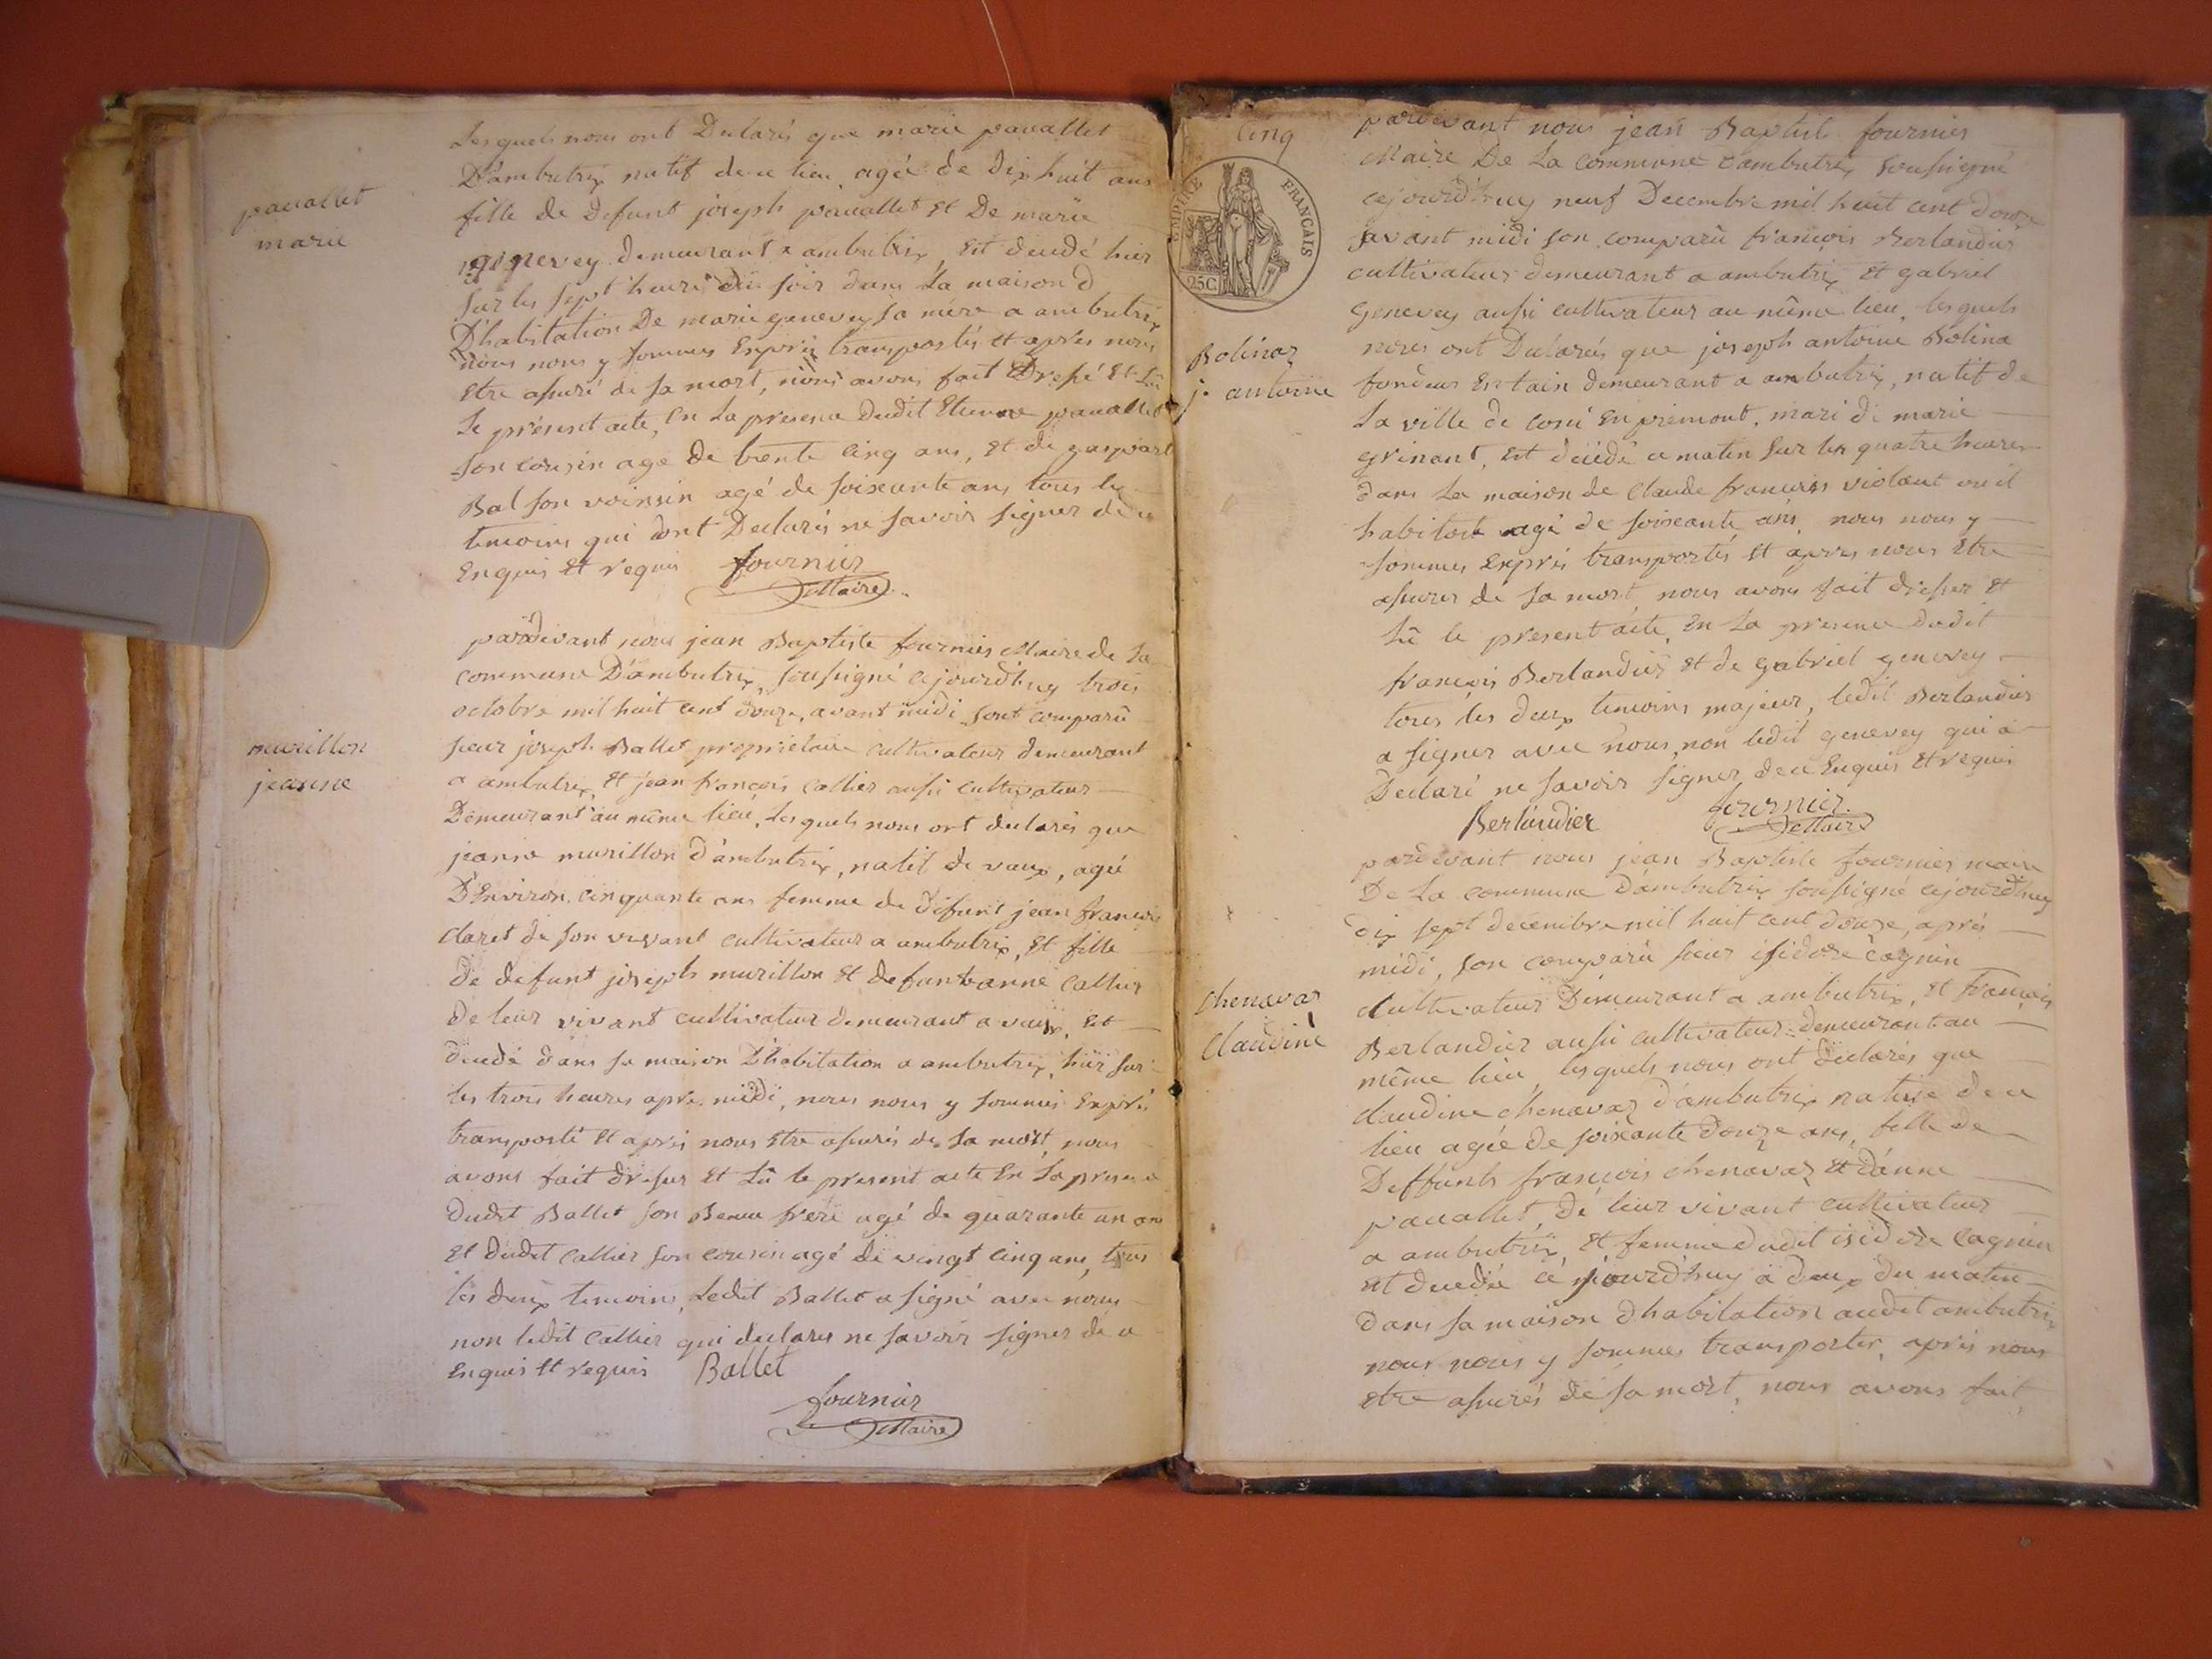 pauallet
marie
Les quels nous ont Dularés que marie pauallet
D'ambutrix natif de ce lieu, agée de dix huit ans
fille de Defunt joseph pauallet Et De marie
genevey demeurant a ambutrix, Est decedé hier
sur les sept heures du soir dans la maison d
D'habitation De marie genevey sa mère a ambutrix
nous nous y sommes Exprès transportés et après nous
Etre assuré de sa mort, nous avons fait Dressé Et Lû
Le présent acte, En La presence dudit Etienne pauallet
son cousin age de trente cinq ans, et de gaspart
Bal son voinsin agé de soixante ans tous les
temoins qui ont Declarés ne savoir signer de ce
Enquis Et requis fournier
Maire
murillon
jeanne
pardevant nous jean Baptiste fournier Maire de La
commune D'ambutrix, soussigné cejourd'huy trois
octobre mil huit cent douze, avant midi sont comparû
sieur joseph Ballet propriétaire cultivateur demeurant
a ambutrix, Et jean françois callier aussi cultivateur
Demeurant au même lieu, Les quels nous ont dularés que
jeanne murillon d'ambutrix, natif de vaux, agée
D'Environ cinquante ans femme de défunt jean françois
claret de son vivant cultivateur a ambutrix, Et fille
de defunt joseph murillon Et defunt anne callier
de leur vivant cultivateur demeurant a vaux, Est
decedé dans sa maison D'habitation a ambutrix, hier sur
les trois heures apres midi, nous nous y sommes Exprès
transporté Et après nous Etre assurés de sa mort, nous
avons fait dresser Et Lû le present acte En La presence
dudit Ballet son Beaux frère agé de quarante un ans
Et dudit callier son cousin agé de vingt cinq ans, tous
les deux temoins, Ledit Ballet a signé avec nous
non ledit callier qui declares ne savoir signer de ce
Enquis Et requis Ballet
fournier
Maire
Cinq
FRANCAIS
25C
pardevant nous jean Baptiste fournier
Maire De La commune d'ambutrix soussigné
cejourd'huy neuf Decembre mil huit cent douze
avant midi son comparû françois Berlandier
cultivateur demeurant a ambutrix Et gabriel
Genevey aussi cultivateur au même lieu, les quels
Bolinaz
j. antoine
nous ont Dularés que joseph antoine Bolina
fondeur En tain demeurant a ambutrix, natif de
La ville de coni En piemont, mari de marie
grinant, Est decédé ce matin sur les quatre heures
dans La maison de Claude françois violant ou il
habitoit agé de soixante ans, nous nous y
sommes Exprès transportés Et apres nous Etre
assurer de sa mort, nous avons fait dresser Et
Lû le present acte, En La presence dudit
françois Berlandier Et de gabriel genevey
tous les deux temoins majeur, ledit Berlandier
a signer avec nous, non ledit genevey qui a
Declaré ne savoir signer, de ce Enquis Et requis
Berlandier fournier
Maire
pardevant nous jean Baptiste fournier maire
De La commune d'ambutrix soussigné cejourd'huy
dix sept decembre mil huit cent douze, après
midi, son comparû sieur isidore cagnin
Chenavaz
Claudine
Cultivateur Demeurant a ambutrix, Et françois
Berlandier aussi cultivateur demeurant au
même lieu, les quels nous ont Dularés que
claudine chenavaz d'ambutrix native de ce
lieu agée de soixante douze ans, fille de
Deffunts françois chenavaz Et d'anne
pauallet, De leur vivant cultivateur
a ambutrix, Et femme dudit isidore Cagnin
Et decedée ce jourd'huy a deux du matin
dans sa maison d'habitation audit ambutrix
nous nous y sommes transporter, après nous
Etre assurés de sa mort, nous avons fait